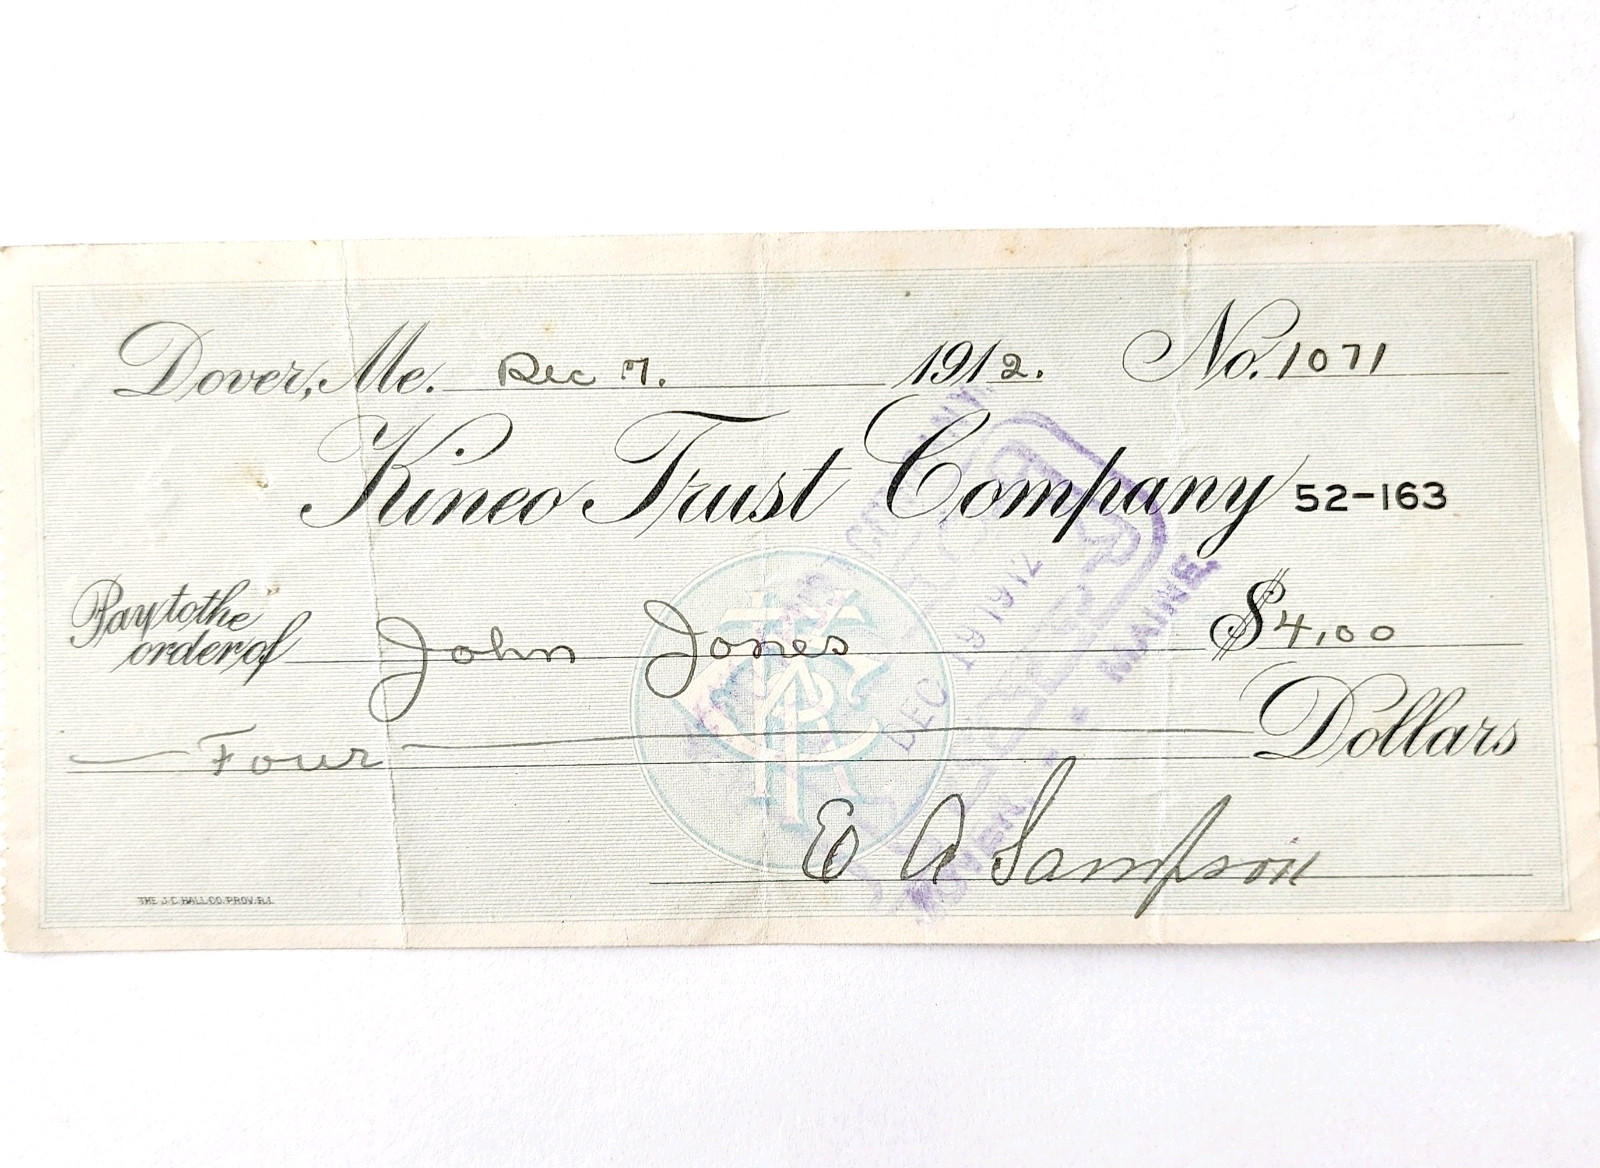 Dover, Me. Dec 7. 1912. No. 1071
Kineo Trust Company 52-163
Pay to the
order of John Jones $4,00
Four Dollars
E A Sampson
THE J.C. HALL CO. PROV. R.I.
DEC 19 1912
MAINE